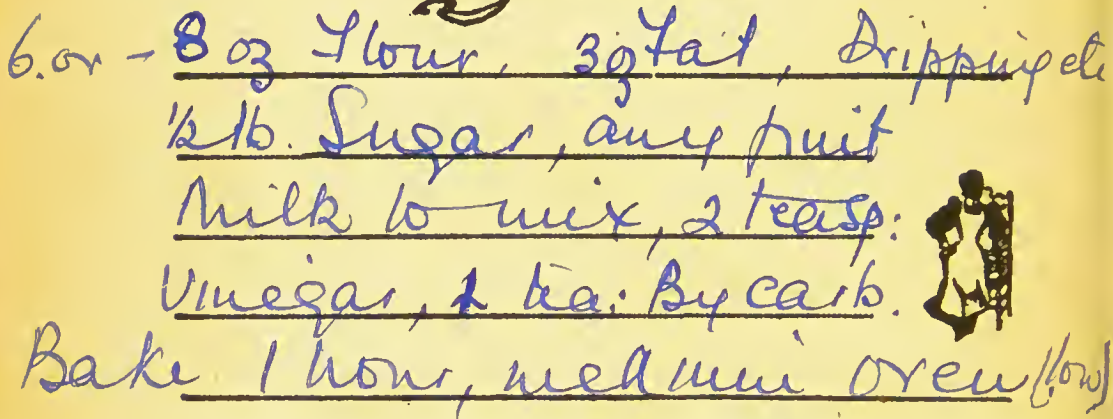 6.or - 8 oz Flour, 3oz Fat, Dripping etc
½ lb. Sugar, any fruit
Milk to mix, 2 teasp:
Vinegar, 1 tea: By carb.
Bake 1 hour, medium oven (low)